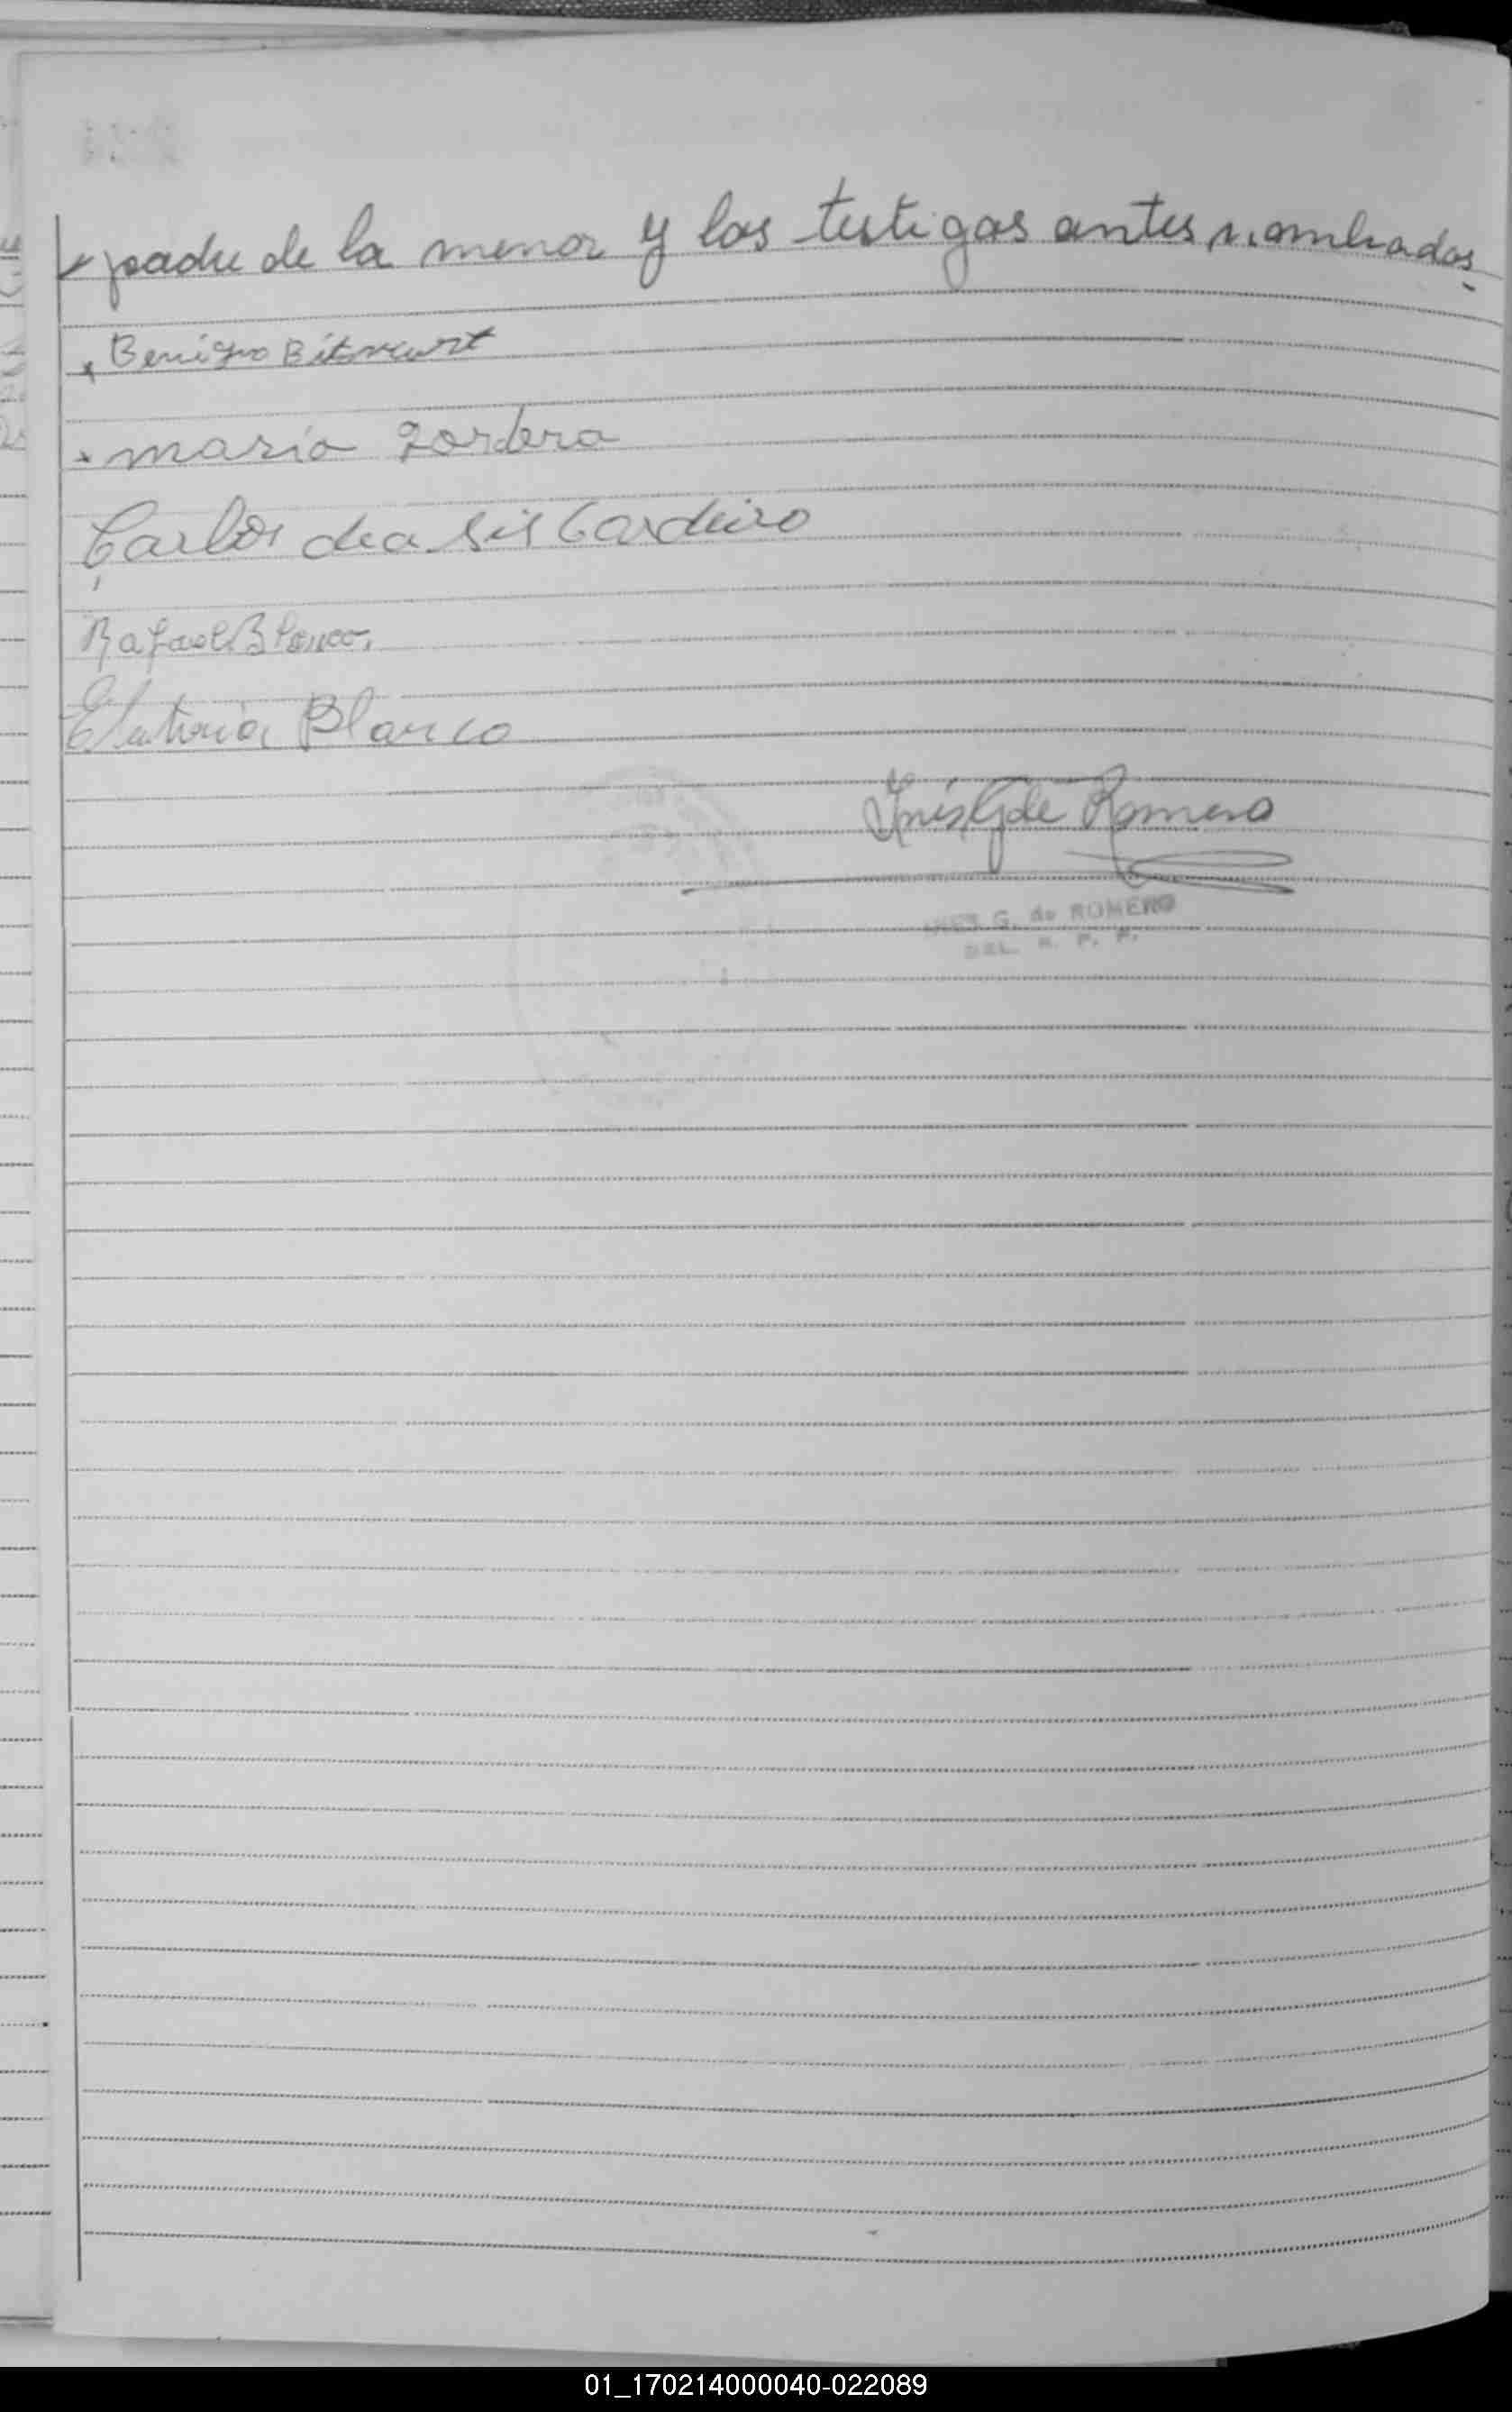 padre de la menor y los testigos antes nombrados.
x Benigno Bitancurt
x maria
Carlos de a sis Cordeiro
Rafael Blanco.
Eleuteria Blanco
Inés G de Romero
INES G. de ROMERO
DEL. R. P. P.
01_170214000040-022089